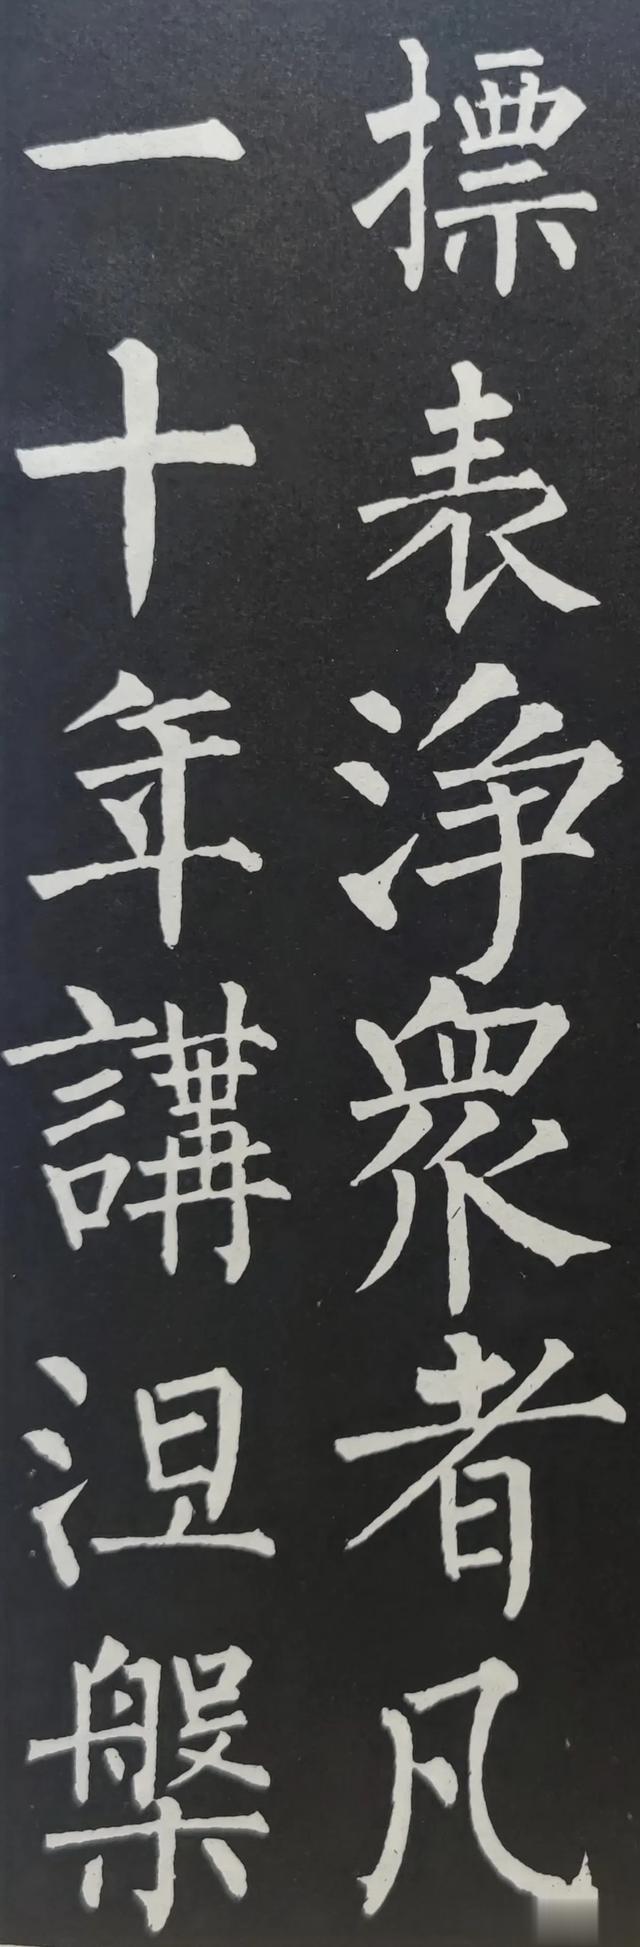 摽表淨衆者凡
一十年講涅槃